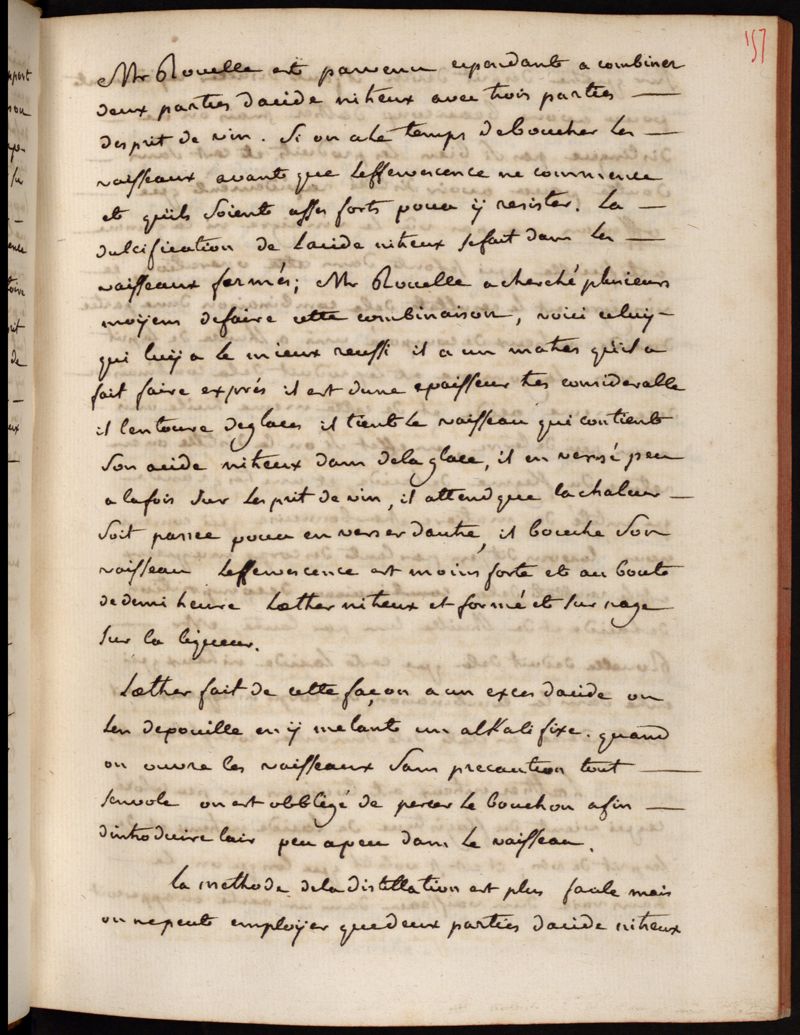 157
Mr Rouelle est parvenu cependant a combiner
deux parties dacide nitreux avec trois parties —
desprit de vin. Si on a le temps deboucher les —
vaisseaux avant que leffervescence ne commence
et quils soient assés forts pour ÿ resister. La —
dulcification de lacide nitreux se fait dans les —
vaisseaux fermés; Mr Rouelle a cherché plusieurs
moÿens defaire cette combinaison, voici celuÿ-
qui luÿ a le mieux reussi il a un matras quil a
fait faire exprés il est dune epaisseur tres considerable
il lentoure deglaces il tient le vaisseau qui contient
son acide nitreux dans dela glace, il en verse peu
a lafois sur lesprit de vin, il attend que la chaleur —
soit passee pour en verser dautre, il bouche son
vaisseau leffervescence est moins forte et au bout
de demi heure læther nitreux est formé et surnage
sur la liqueur.
Læther fait de cette façon a un exces dacide on
len depouille en ÿ melant un alkali fixe. quand
on ouvre les vaisseaux sans precaution tout —
senvole on est obbligé de percer le bouchon afin —
dintroduire lair peu apeu dans le vaisseau.
la methode dela distillation est plus facile mais
on nepeut emploÿer que deux parties dacide nitreux